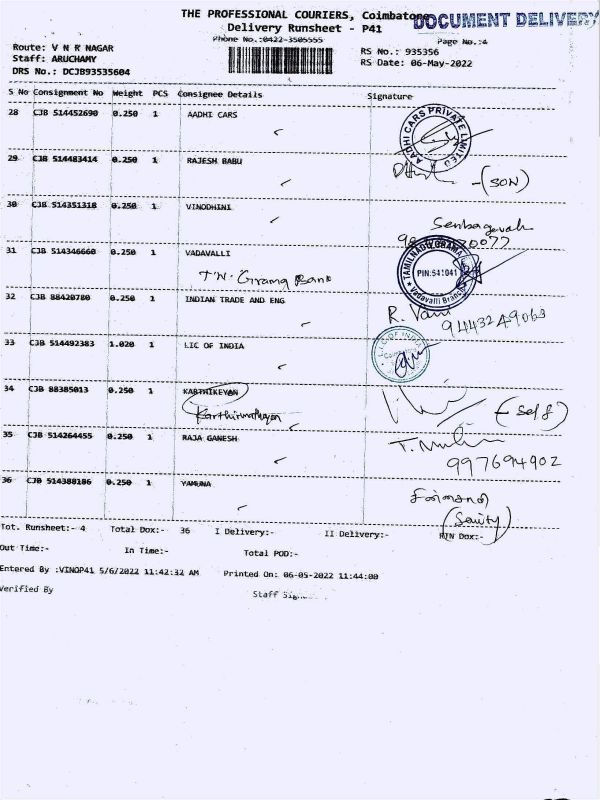 THE PROFESSIONAL COURIERS, Coimbatore
DOCUMENT DELIVERY
Delivery Runsheet - P41
Phone No.:0422-3505555
Page No.:4
Route: V N R NAGAR
RS No.: 935356
Staff: ARUCHAMY
RS Date: 06-May-2022
DRS No.: DCJB93535604
S No Consignment No Weight PCS Consignee Details Signature
28 CJB 514452690 0.250 1 AADHI CARS
AADHI CARS PRIVATE LIMITED
29 CJB 514483414 0.250 1 RAJESH BABU
(SON)
30 CJB 514351318 0.250 1 VINODHINI
Senbagavalli
31 CJB 514346660 0.250 1 VADAVALLI
T.N. Grama Bank
TAMILNADU GRAMA
PIN:641041
Vadavalli Branch
32 CJB 88420780 0.250 1 INDIAN TRADE AND ENG
R. Vani
9443249063
33 CJB 514492383 1.020 1 LIC OF INDIA
34 CJB 88385013 0.250 1 KARTHIKEYAN
(self)
35 CJB 514264455 0.250 1 RAJA GANESH
997694902
36 CJB 514388186 0.250 1 YAMUNA
Tot. Runsheet:- 4 Total Dox:- 36 I Delivery:- II Delivery:- RTN Dox:-
Out Time:- In Time:- Total POD:-
Entered By :VINOP41 5/6/2022 11:42:32 AM Printed On: 06-05-2022 11:44:00
Verified By
Staff